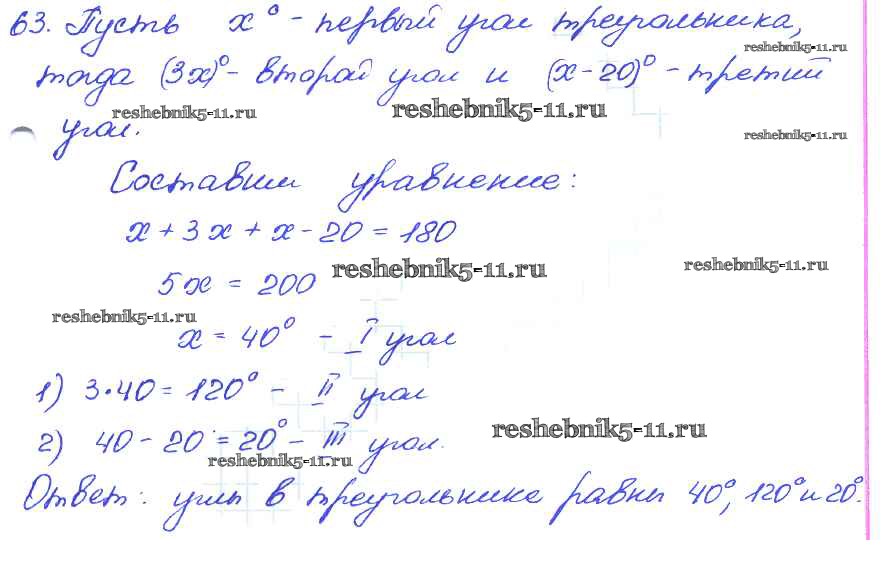 63. Пусть x° - первый угол треугольника,
reshebnik5-11.ru
тогда (3x)° - второй угол и (x-20)° - третий
reshebnik5-11.ru
reshebnik5-11.ru
угол.
reshebnik5-11.ru
Составим уравнение:
x + 3x + x - 20 = 180
reshebnik5-11.ru
reshebnik5-11.ru
5x = 200
reshebnik5-11.ru
x = 40° - I угол
1) 3·40 = 120° - II угол
2) 40 - 20 = 20° - III угол.
reshebnik5-11.ru
reshebnik5-11.ru
Ответ: углы в треугольнике равны 40°, 120° и 20°.